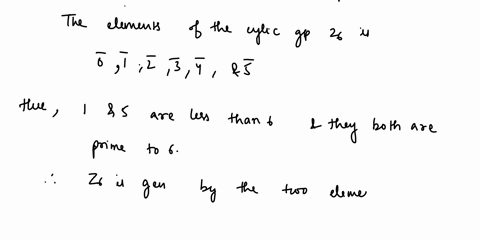 The elements of the cyclic gp Z6 is
0̄, 1̄, 2̄, 3̄, 4̄, & 5̄
thue, 1 & 5 are less than 6 & they both are
prime to 6.
∴ Z6 is gen by the two eleme